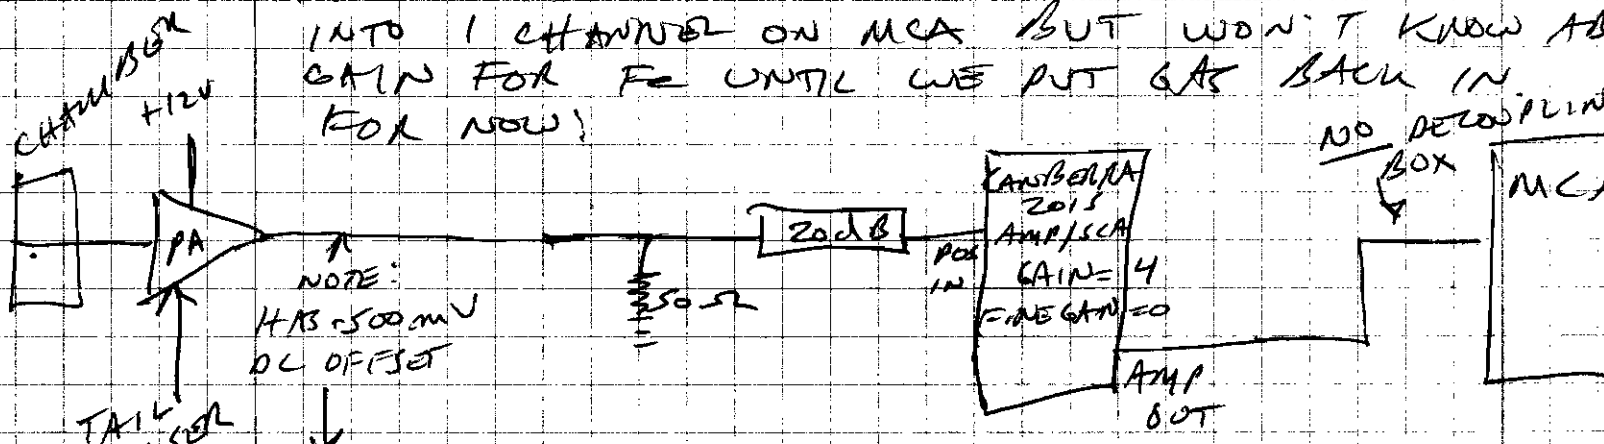 INTO 1 CHANNEL ON MCA BUT WON'T KNOW AB
GAIN FOR Fe UNTIL WE PUT GAS BACK IN
FOR NOW!
CHAMBER
+12V
PA
NOTE:
HAS -500mV
DC OFFSET
TAIL
50 Ω
20dB
POS
IN
CANBERRA
2015
AMP/SCA
GAIN= 4
FINE GAIN=0
AMP
OUT
NO DECOUPLIN
BOX
MCA